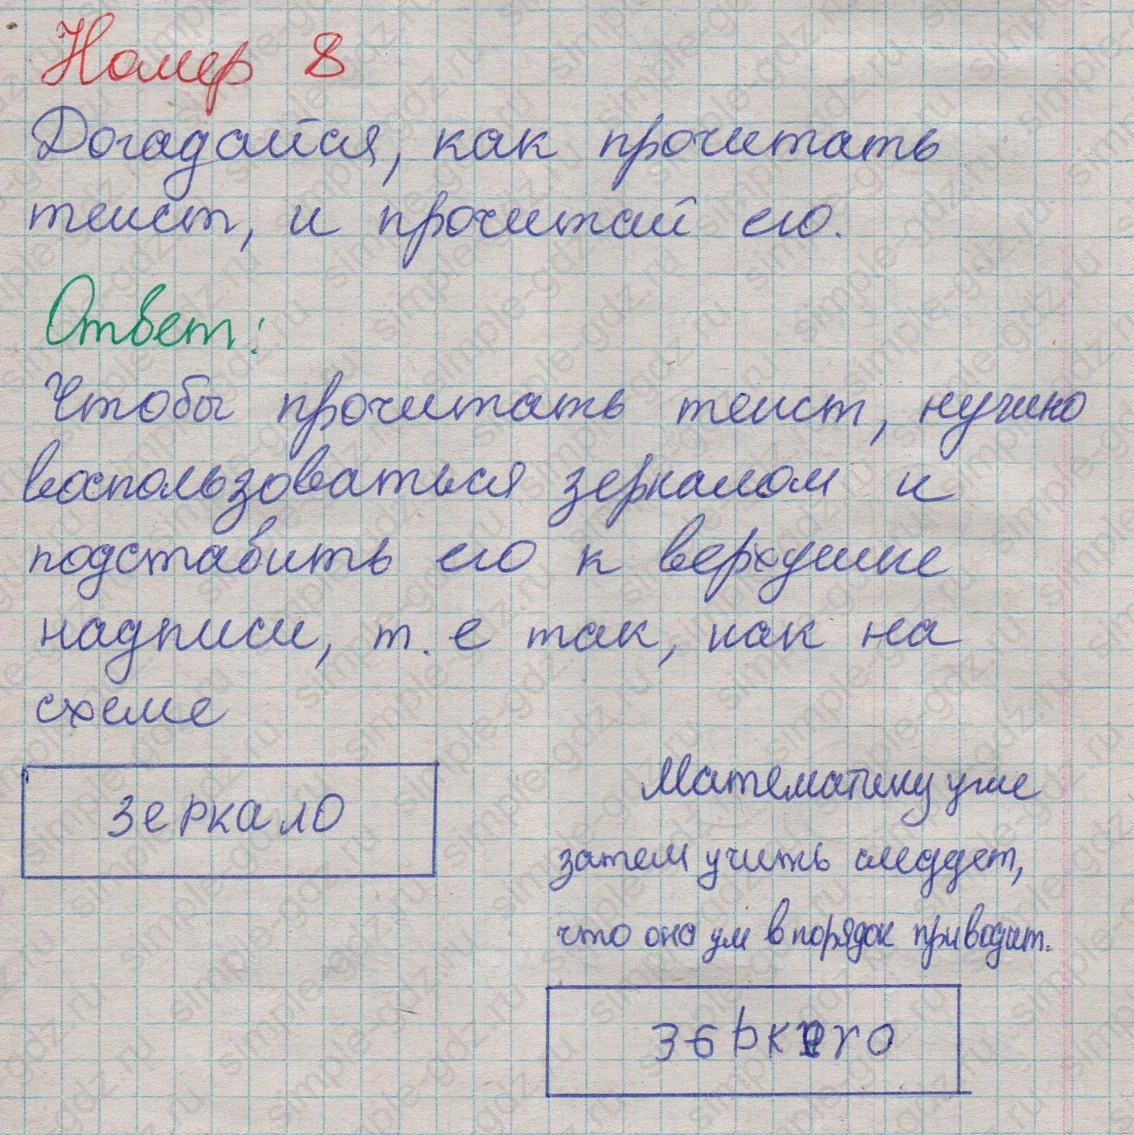 Номер 8
Догадайся, как прочитать
текст, и прочитай его.
Ответ:
Чтобы прочитать текст, нужно
воспользоваться зеркалом и
подставить его к верхушке
надписи, т. е так, как на
схеме
зеркало
Математику уже
затем учить следует,
что она ум в порядок приводит.
simple-gdz.ru